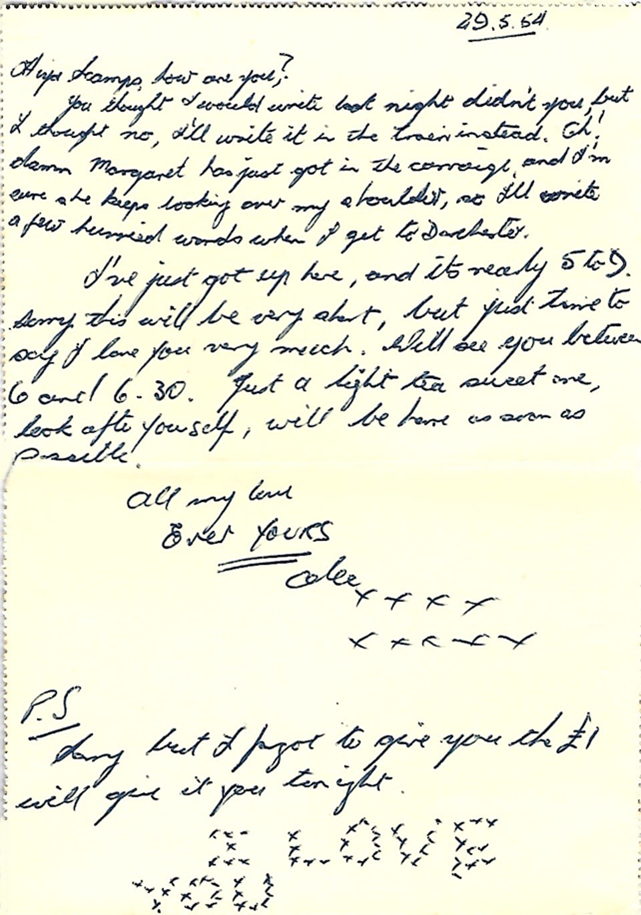 29.5.54
Hiya Scamps, how are you?
You thought I would write last night didn't you, but
I thought no, I'll write it in the train instead. Oh!
damn Margaret has just got in the carraige, and I'm
sure she keeps looking over my shoulder, so I'll write
a few hurried words when I get to Dorchester.
I've just got up here, and its nearly 5 to 9.
sorry this will be very short, but just time to
say I love you very much. Will see you between
6 and 6.30. Just a light tea sweet one,
look after yourself, will be home as soon as
possible.
All my love
Ever YOURS
xxxx
xxxxx
P.S
Sorry but I forgot to give you the £1
will give it you tonight.
I LOVE
YOU